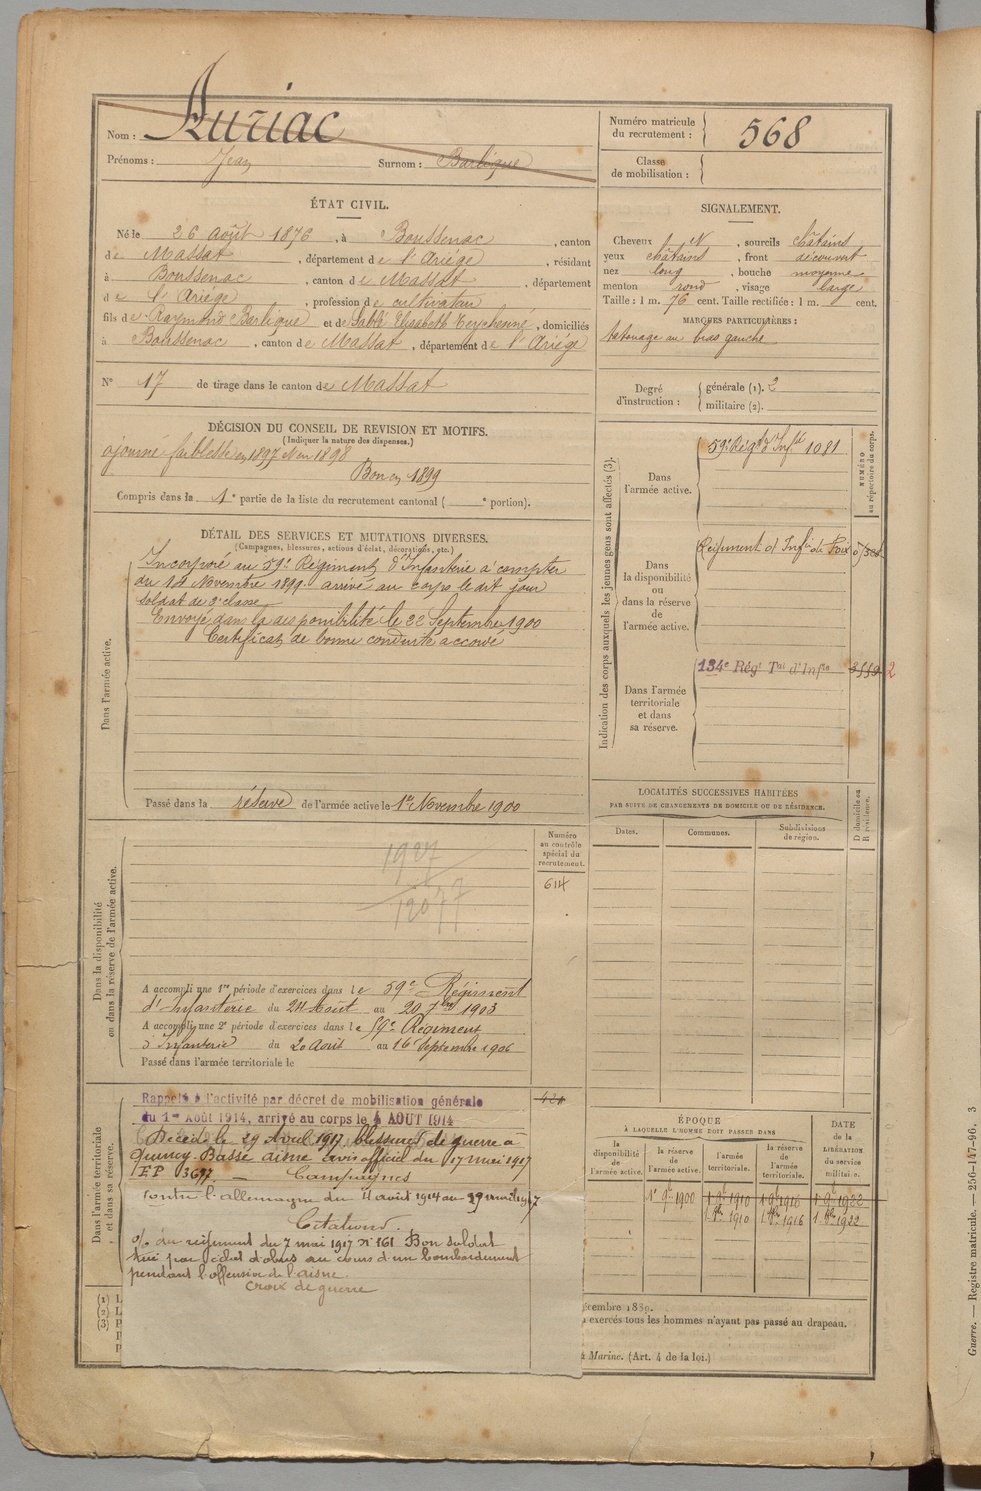 Nom : Auriac
Prénoms : Jean Surnom : Barlique
Numéro matricule du recrutement : 568
Classe de mobilisation :
ÉTAT CIVIL.
Né le 26 Août 1876, à Boussenac, canton
de Massat, département de l'Ariège, résidant
à Boussenac, canton de Massat, département
de l'Ariège, profession de cultivateur
fils de Raymond Barlique et de Elisabeth Teychenné, domiciliés
à Boussenac, canton de Massat, département de l'Ariège
N° 17 de tirage dans le canton de Massat
SIGNALEMENT.
Cheveux N, sourcils châtains
yeux châtains, front découvert
nez long, bouche moyenne
menton rond, visage large
Taille : 1 m. 76 cent. Taille rectifiée : 1 m. cent.
MARQUES PARTICULIÈRES :
tatouage au bras gauche
Degré d'instruction : générale (1). 2
militaire (2).
DÉCISION DU CONSEIL DE REVISION ET MOTIFS.
(Indiquer la nature des dispenses.)
ajourné faiblesse en 1897 et en 1898
Bon en 1899
Compris dans la 1e partie de la liste du recrutement cantonal ( e portion).
DÉTAIL DES SERVICES ET MUTATIONS DIVERSES.
(Campagnes, blessures, actions d'éclat, décorations, etc.)
Dans l'armée active.
Incorporé au 59e Régiment d'Infanterie à compter
du 14 Novembre 1899. arrivé au corps le dit jour
soldat de 2e classe
Envoyé dans la disponibilité le 22 Septembre 1900
Certificat de bonne conduite accordé
Passé dans la réserve de l'armée active le 1er Novembre 1900
Indication des corps auxquels les jeunes gens sont affectés (3).
NUMÉRO au répertoire du corps.
Dans l'armée active.
59e Régt d'Infie 1081
Dans la disponibilité ou dans la réserve de l'armée active.
Régiment d'Infie de Foix
Dans l'armée territoriale et dans sa réserve.
134e Régt Tal d'Infie
2
LOCALITÉS SUCCESSIVES HABITÉES
PAR SUITE DE CHANGEMENTS DE DOMICILE OU DE RÉSIDENCE.
D domicile ou R résidence.
Dates. Communes. Subdivisions de région.
Dans la disponibilité ou dans la réserve de l'armée active.
Numéro au contrôle spécial du recrutement.
614
1927
12077
A accompli une 1re période d'exercices dans le 59e Régiment
d'Infanterie du 24 Août au 20 7bre 1903
A accompli une 2e période d'exercices dans le 59e Régiment
d'Infanterie du 20 Août au 16 Septembre 1906
Passé dans l'armée territoriale le
Dans l'armée territoriale et dans sa réserve.
Rappelé à l'activité par décret de mobilisation générale
du 1er Août 1914, arrivé au corps le 4 AOUT 1914
Décédé le 29 Avril 1917 blessures de guerre à
Quincy-Basse aisne avis officiel du 17 mai 1917
FP 3697. — Campagnes
contre l'allemagne du 4 août 1914 au 29 avril 1917
Citations.
o/ du régiment du 7 mai 1917 N° 161 Bon soldat
tué par éclat d'obus au cours d'un bombardement
pendant l'offensive de l'aisne
Croix de guerre
ÉPOQUE
À LAQUELLE L'HOMME DOIT PASSER DANS
la disponibilité de l'armée active.
la réserve de l'armée active.
l'armée territoriale.
la réserve de l'armée territoriale.
DATE de la LIBÉRATION du service militaire.
1er 9bre 1900 1 9bre 1910 1 9bre 1916 1 9bre 1922
1 8bre 1910 1 8bre 1916 1 8bre 1922
(1) L
(2) L
(3) P
P
P
écembre 1889.
exercés tous les hommes n'ayant pas passé au drapeau.
à Marine. (Art. 4 de la loi.)
Guerre. — Registre matricule. — 256-147-96. 3